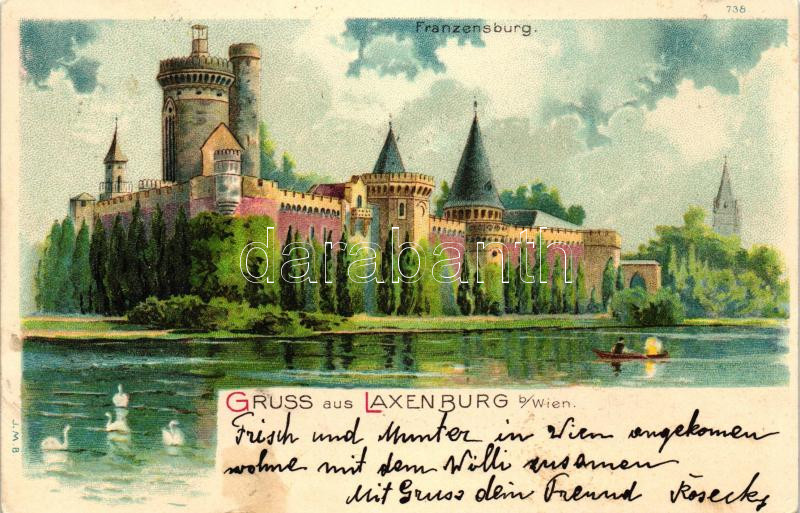 738
Franzensburg.
darabanth
GRUSS AUS LAXENBURG b/Wien.
J.M.B
Frisch und Munter in Wien angekomen
wohne mit dem Willi zusamen
Mit Gruss dein Freund